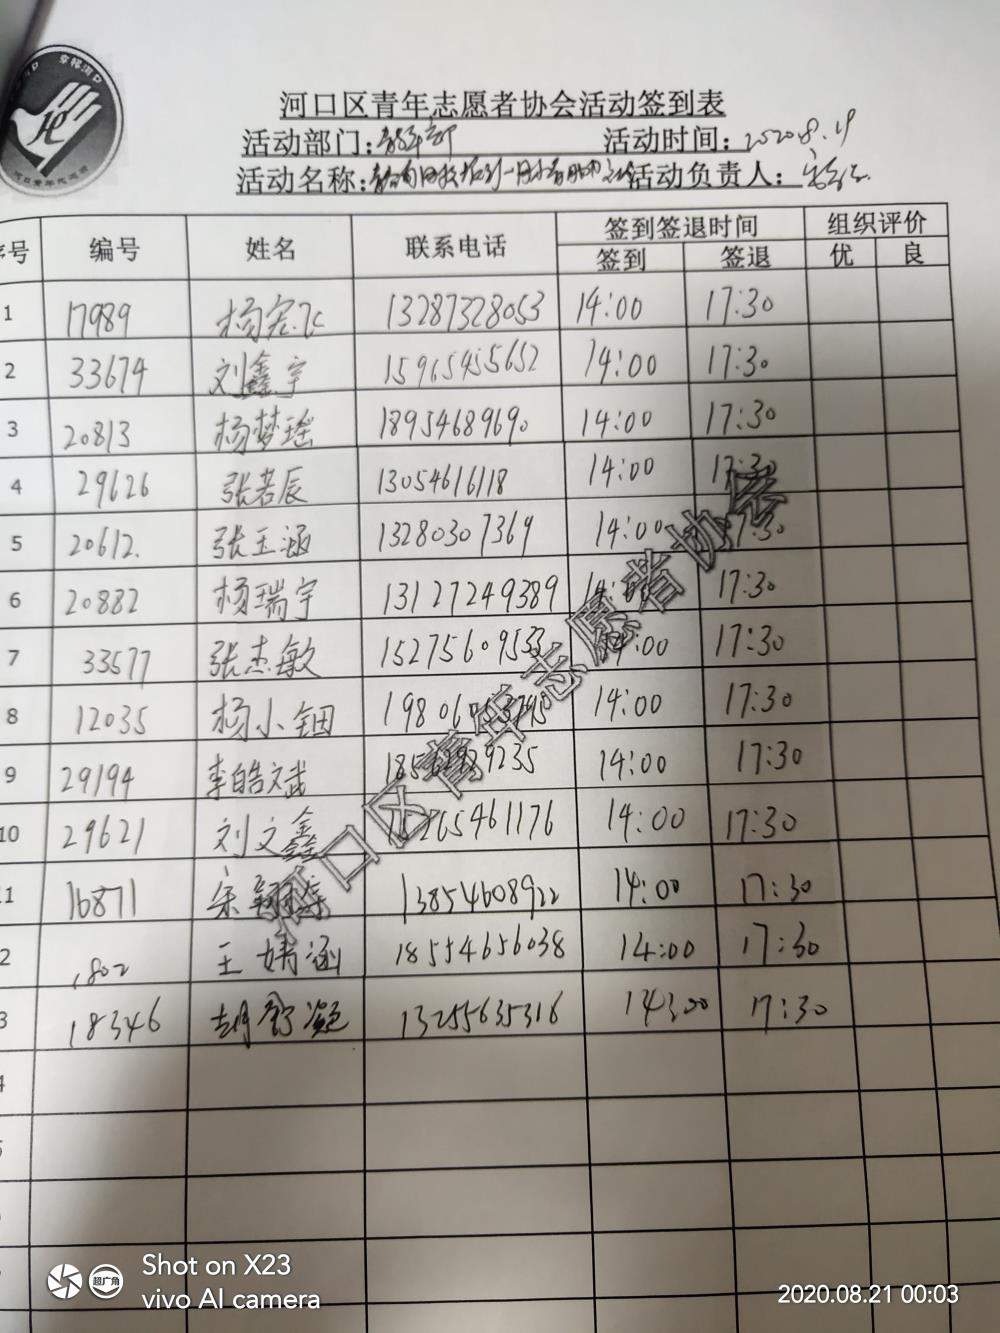 河口区青年志愿者协会活动签到表
活动部门: 活动时间: 2020.8.19
活动名称: 活动负责人:
序号 编号 姓名 联系电话 签到签退时间 组织评价
签到 签退 优 良
1 17989 杨宏飞 13287328053 14:00 17:30
2 33674 刘鑫宇 15965455652 14:00 17:30
3 20813 杨梦瑶 18954689690 14:00 17:30
4 29626 张若辰 13054616118 14:00 17:30
5 20612. 张玉涵 13280307369 14:00 17:30
6 20882 杨瑞宇 13127249389 14:00 17:30
7 33577 张杰敏 15275609533 14:00 17:30
8 12035 杨小钿 14:00 17:30
9 29194 李皓文武 14:00 17:30
10 29621 刘文鑫 14:00 17:30
11 16871 宋 13854608922 14:00 17:30
2 1802 王婧涵 18554656038 14:00 17:30
3 18346 胡舒凝 13255635316 14:00 17:30
河口区青年志愿者协会
Shot on X23
超广角
vivo AI camera
2020.08.21 00:03